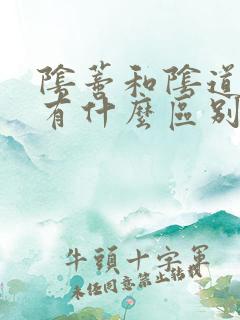 陰蒂和陰道
有什麼區別
牛頭十字軍
未經同意禁止轉載